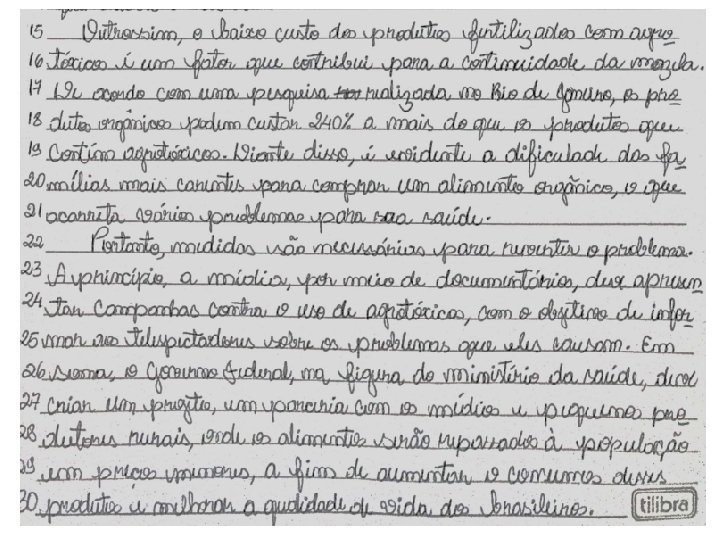 15 Outrossim, o baixo custo dos produtos fertilizados com agro
16 tóxicos é um fator que contribui para a continuidade da mazela.
17 De acordo com uma pesquisa realizada no Rio de Janeiro, os pro
18 dutos orgânicos podem custar 240% a mais do que os produtos que
19 contém agrotóxicos. Diante disso, é evidente a dificuldade das fa
20 mílias mais carentes para comprar um alimento orgânico, o que
21 acarreta vários problemas para sua saúde.
22 Portanto, medidas são necessárias para reverter o problema.
23 A princípio, a mídia, por meio de documentários, deve apresen
24 tar campanhas contra o uso de agrotóxicos, com o objetivo de infor
25 mar aos telespectadores sobre os problemas que eles causam. Em
26 suma, o Governo federal, na figura do ministério da saúde, deve
27 criar um projeto, um parceria com as mídias e pequenos pro
28 dutores rurais, onde os alimentos serão repassados à população
29 em preços menores, a fim de aumentar o consumo desses
30 produtos e melhorar a qualidade de vida dos brasileiros.
tilibra